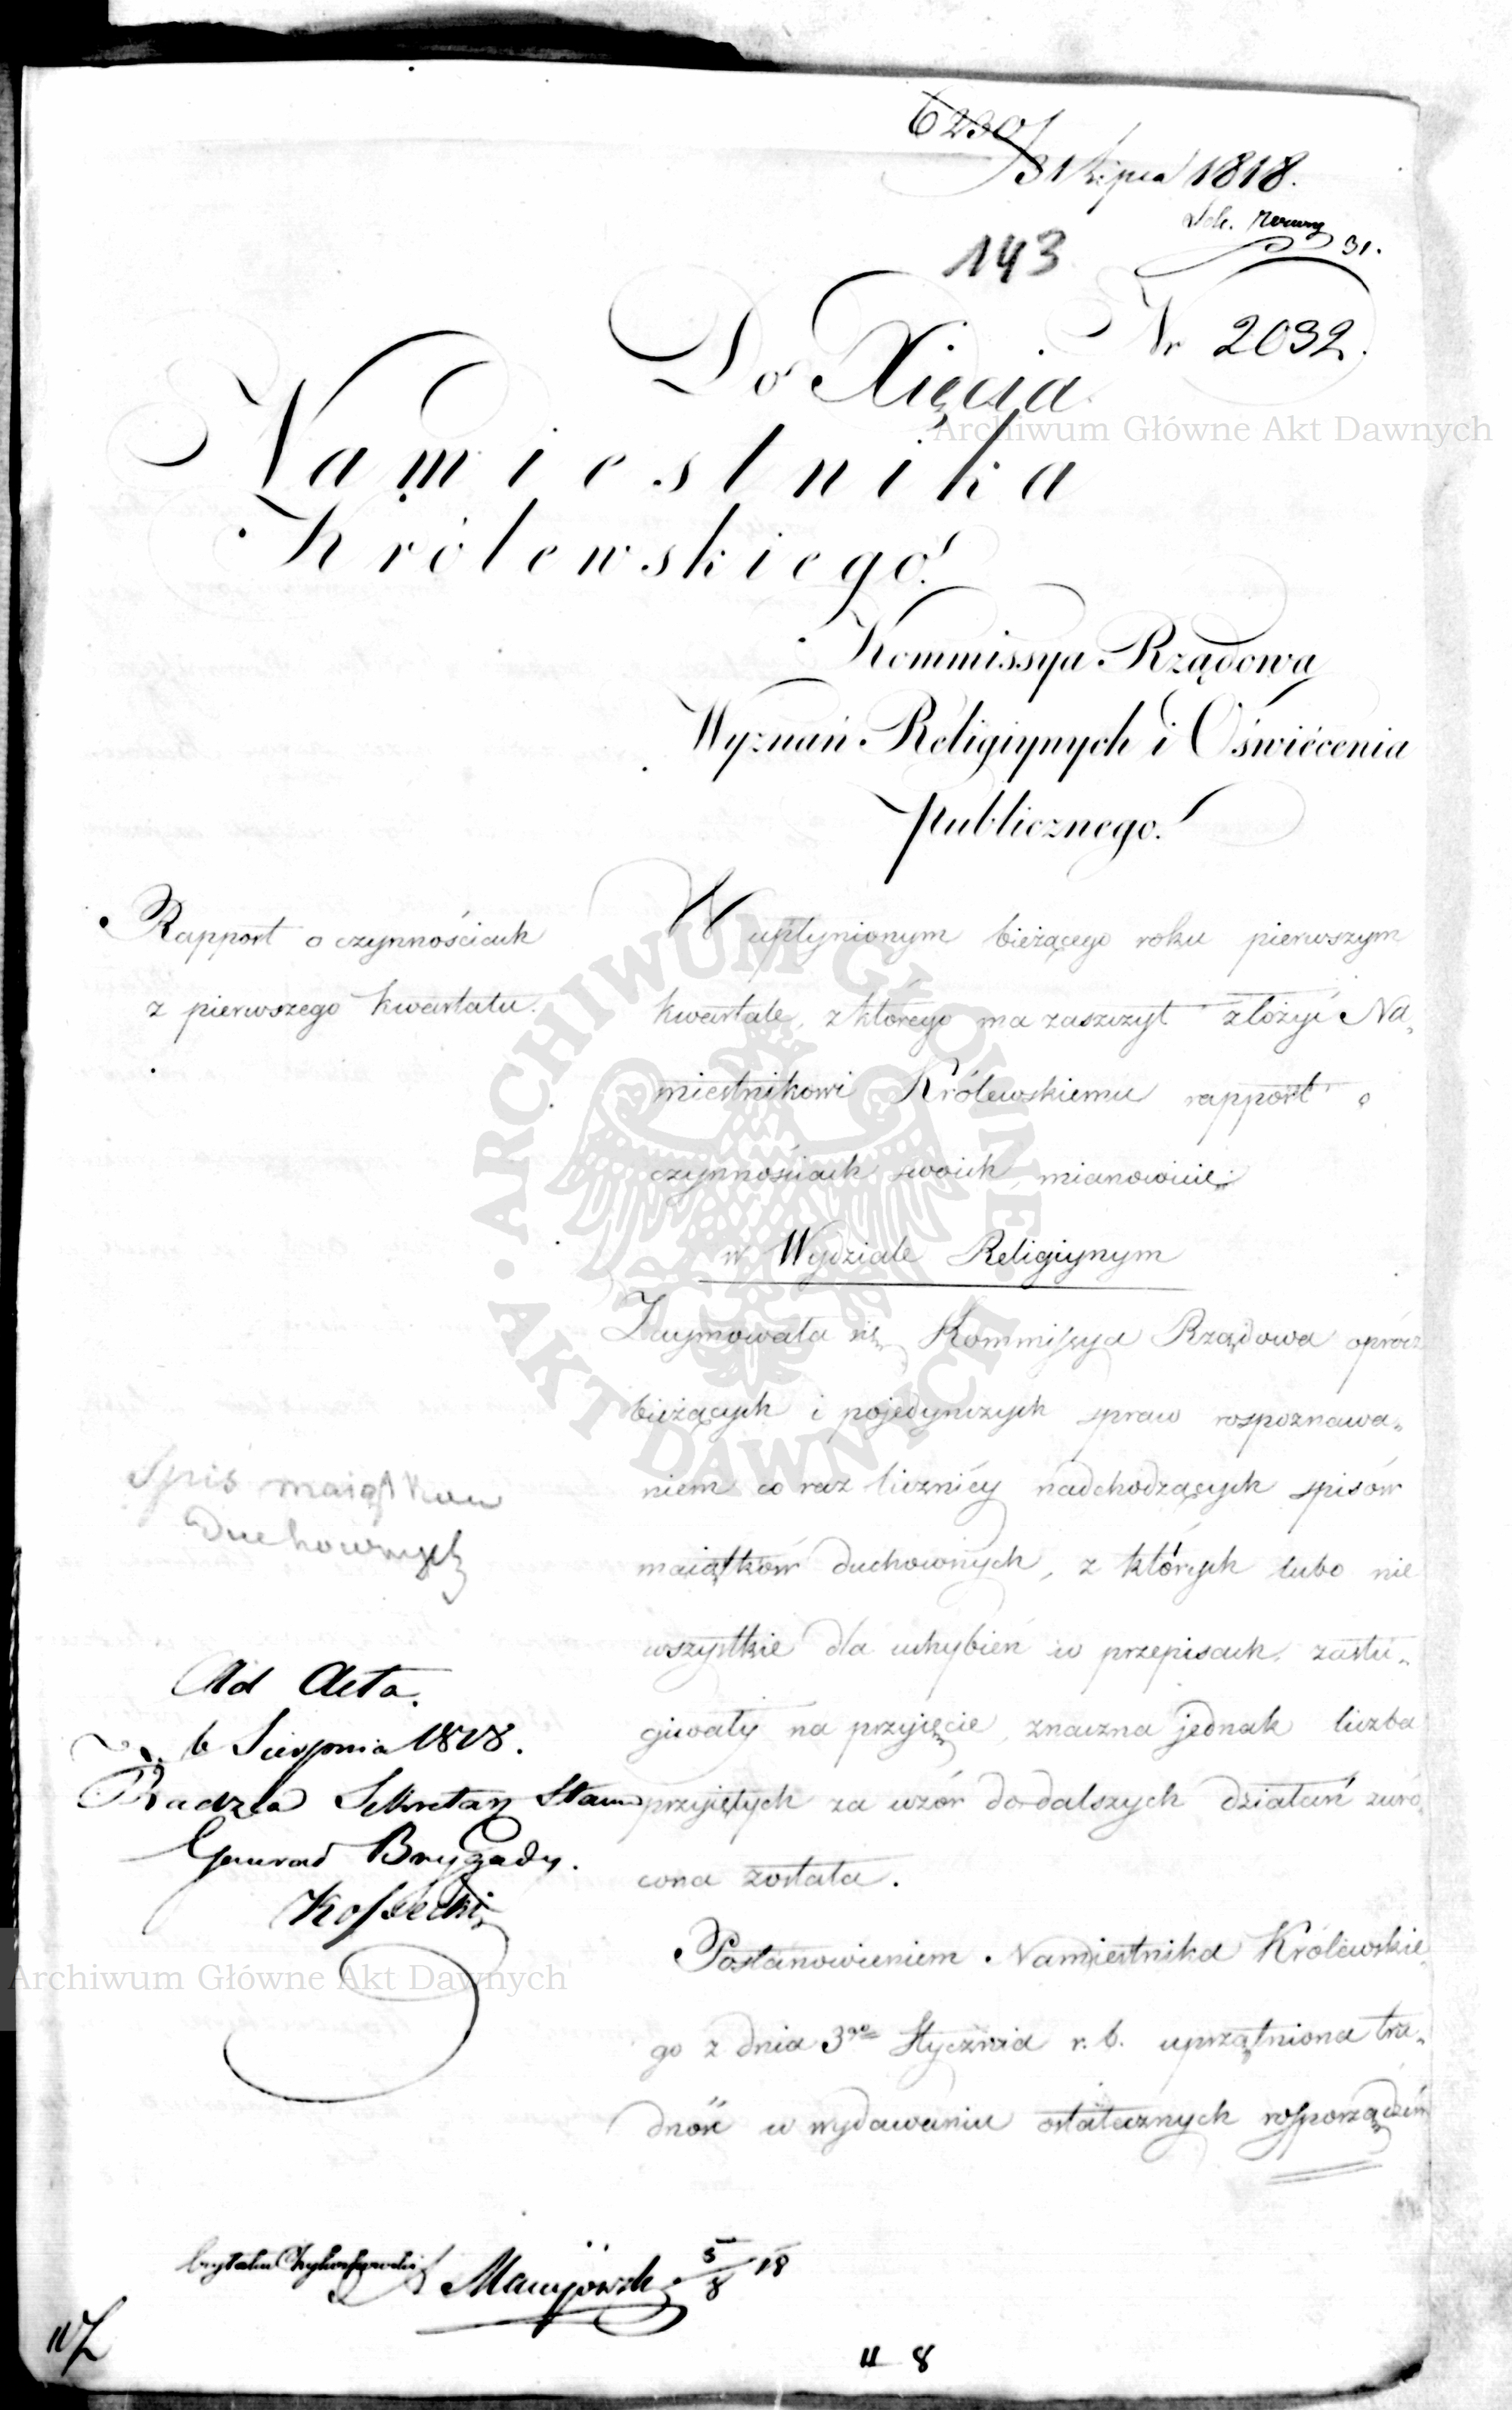 6230
31 Lipca 1818.
31.
143
Nr 2032.
Do Xięcia
Namiestnika
Królewskiego.
Kommissya Rządowa
Wyznań Religiynych i Oświécenia
publicznego.
Rapport o czynnościach
z pierwszego kwartału.
W upłynionym bieżącego roku pierwszym
kwartale, z którego ma zaszczyt złożyć Na„
miestnikowi Królewskiemu rapport o
czynnościach swoich, mianowicie:
w Wydziale Religiynym
Zaymowała się Kommissya Rządowa oprócz
bieżących i pojedynczych spraw rospoznawa„
niem co raz liczniéy nadchodzących spisów
maiątków duchownych, z których lubo nie
wszystkie dla uchybień w przepisach, zasłu„
giwały na przyięcie, znaczna jednak liczba
przyiętych za wzór do dalszych działań zwró„
cona została.
Postanowieniem Namiestnika Królewskie„
go z dnia 3go Stycznia r. b. uprzątniona tru„
dność w wydawaniu ostatecznych rosporządzeń
Spis maiątkow
Duchownych
Ad Acta.
d. 6 Sierpnia 1818.
Radzca Sekretarz Stanu
Generał Brygady.
Kossecki
czytałem Maciejowski 5/8 18
11 8
Archiwum Główne Akt Dawnych
ARCHIWUM GŁÓWNE AKT DAWNYCH
Archiwum Główne Akt Dawnych